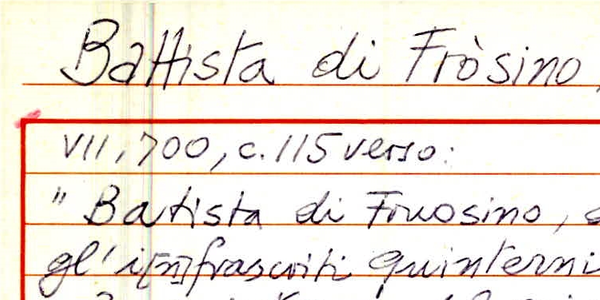 Battista di Fròsino,
VII, 700, c. 115 verso:
" Batista di Fruosino,
gl' i[n]frascriti quinterni